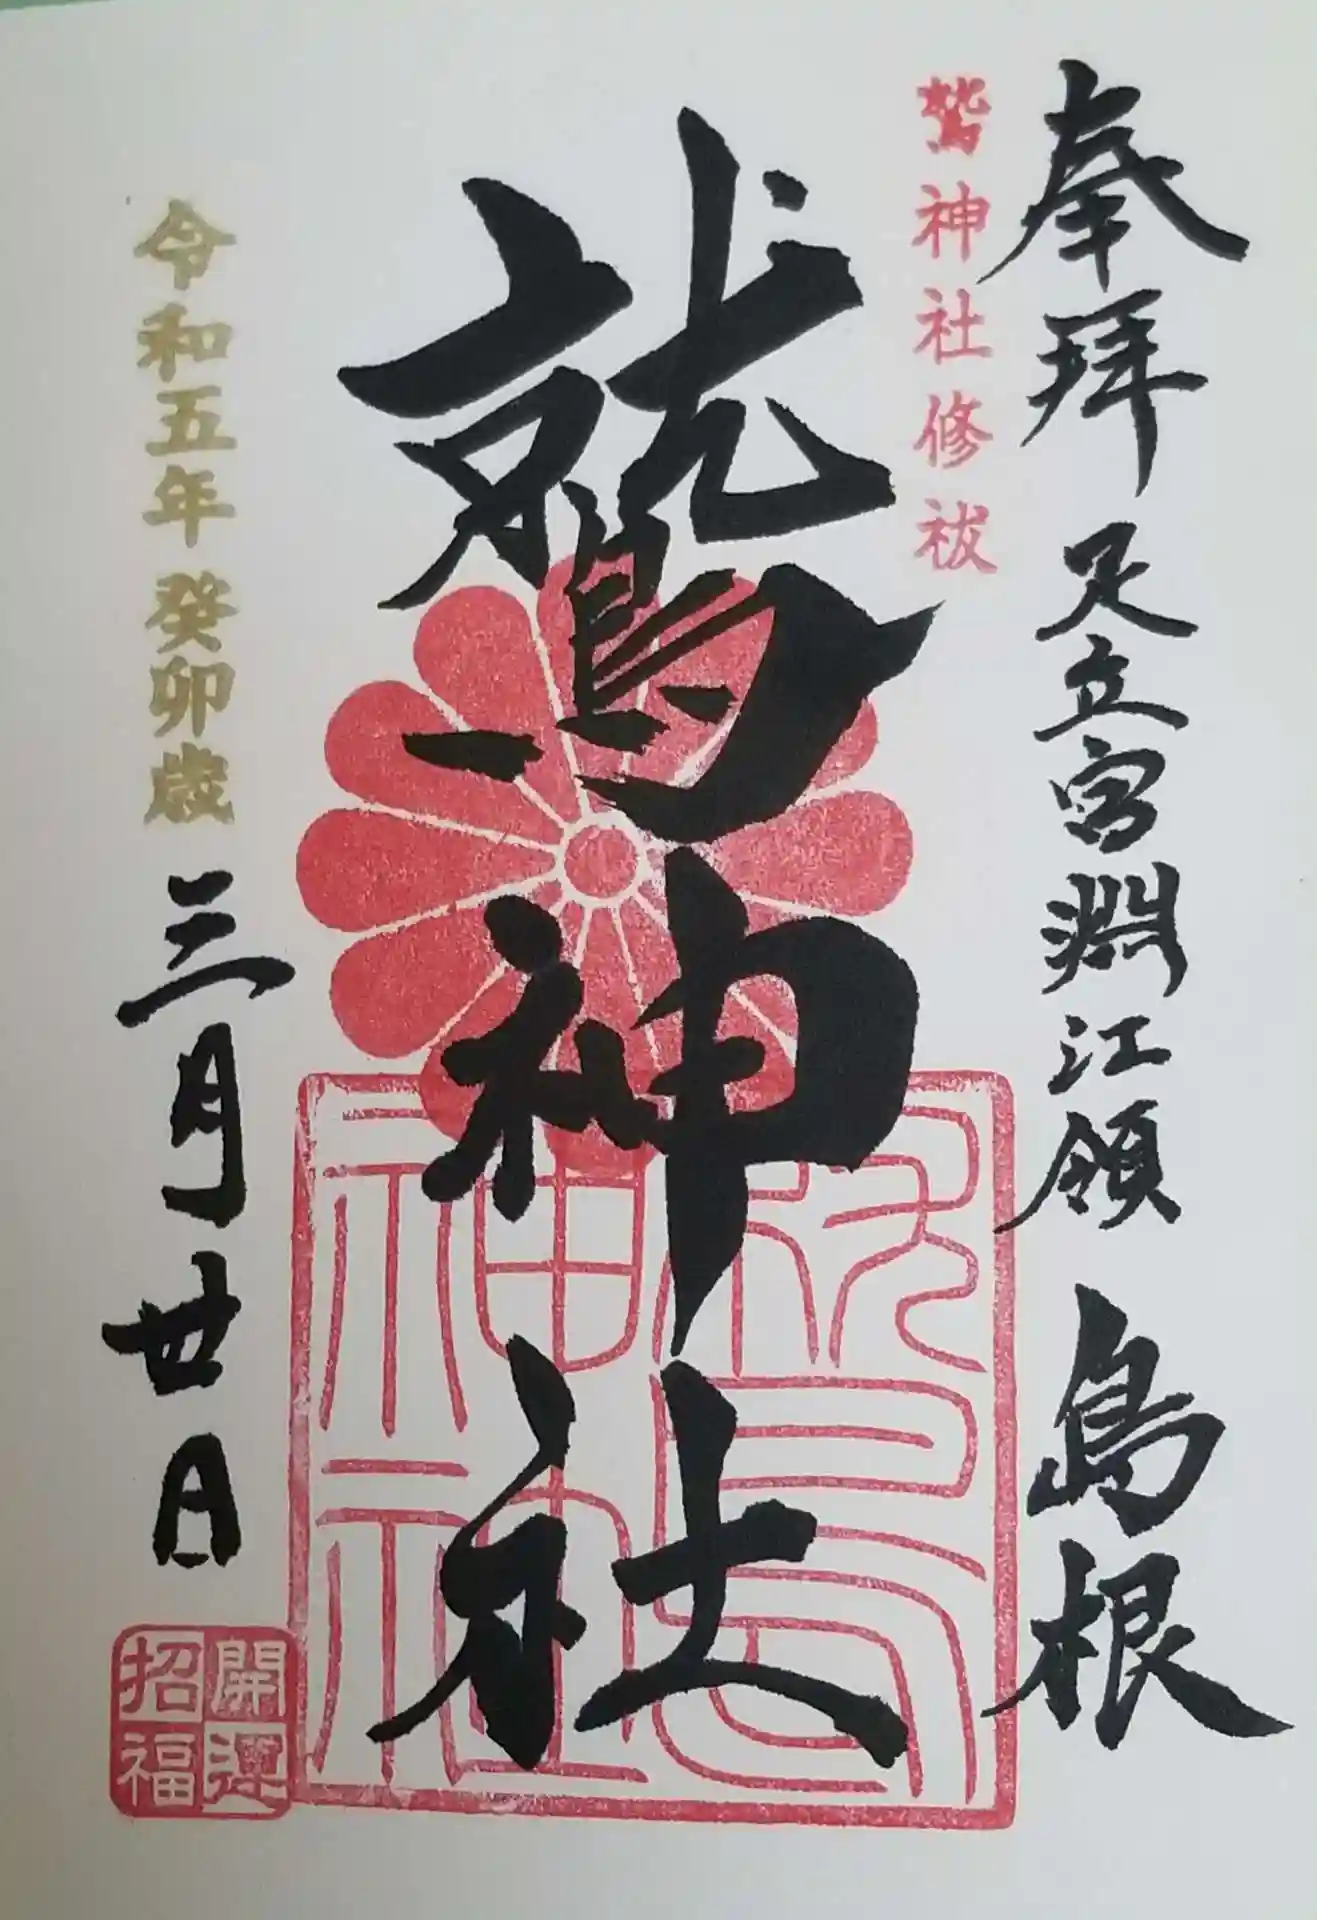 奉拝 足立宮淵江領 島根
鷲神社修祓
鷲神社
鷲神社
令和五年 癸卯歳 三月廿日
開運
招福